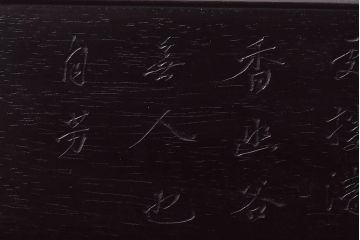 香幽谷
喜人也
自芳